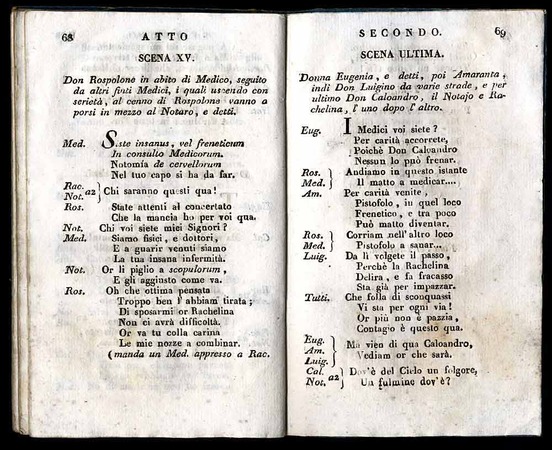 68 ATTO
SCENA XV.
Don Rospolone in abito di Medico, seguito
da altri finti Medici, i quali uscendo con
serietà, al cenno di Rospolone vanno a
porsi in mezzo al Notaro, e detti.
Med. Siste insanus, vel freneticum
In consulio Medicorum.
Notomia de cervellorum
Nel tuo capo si ha da far.
Rac.
Not. a2 Chi saranno questi qua!
Ros. State attenti al concertato
Che la mancia ho per voi qua.
Not. Chi voi siete miei Signori?
Med. Siamo fisici, e dottori,
E a guarir venuti siamo
La tua insana infermità.
Not. Or li piglio a scopulorum,
E gli aggiusto come va.
Ros. Oh che ottima pensata
Troppo ben l'abbiam tirata;
Di sposarmi or Rachelina
Non ci avrà difficoltà.
Or va tu colla carina
Le mie nozze a combinar.
(manda un Med. appresso a Rac.
SECONDO. 69
SCENA ULTIMA.
Donna Eugenia, e detti, poi Amaranta,
indi Don Luigino da varie strade, e per
ultimo Don Caloandro, il Notajo e Ra-
chelina, l'uno dopo l'altro.
Eug. I Medici voi siete?
Per carità accorrete,
Poichè Don Caloandro
Nessun lo può frenar.
Ros.
Med. Andiamo in questo istante
Il matto a medicar....
Am. Per carità venite,
Pistofolo, in quel loco
Frenetico, e tra poco
Può matto diventar.
Ros.
Med. Corriam nell'altro loco
Pistofolo a sanar...
Luig. Da lì volgete il passo,
Perchè la Rachelina
Delira, e fa fracasso
Sta già per impazzar.
Tutti. Che folla di sconquassi
Vi sta per ogni via!
Or più non è pazzia,
Contagio è questo qua.
Eug.
Am.
Luig. Ma vien di qua Caloandro,
Vediam or che sarà.
Cal.
Not. a2 Dov'è del Cielo un folgore,
Un fulmine dov'è?